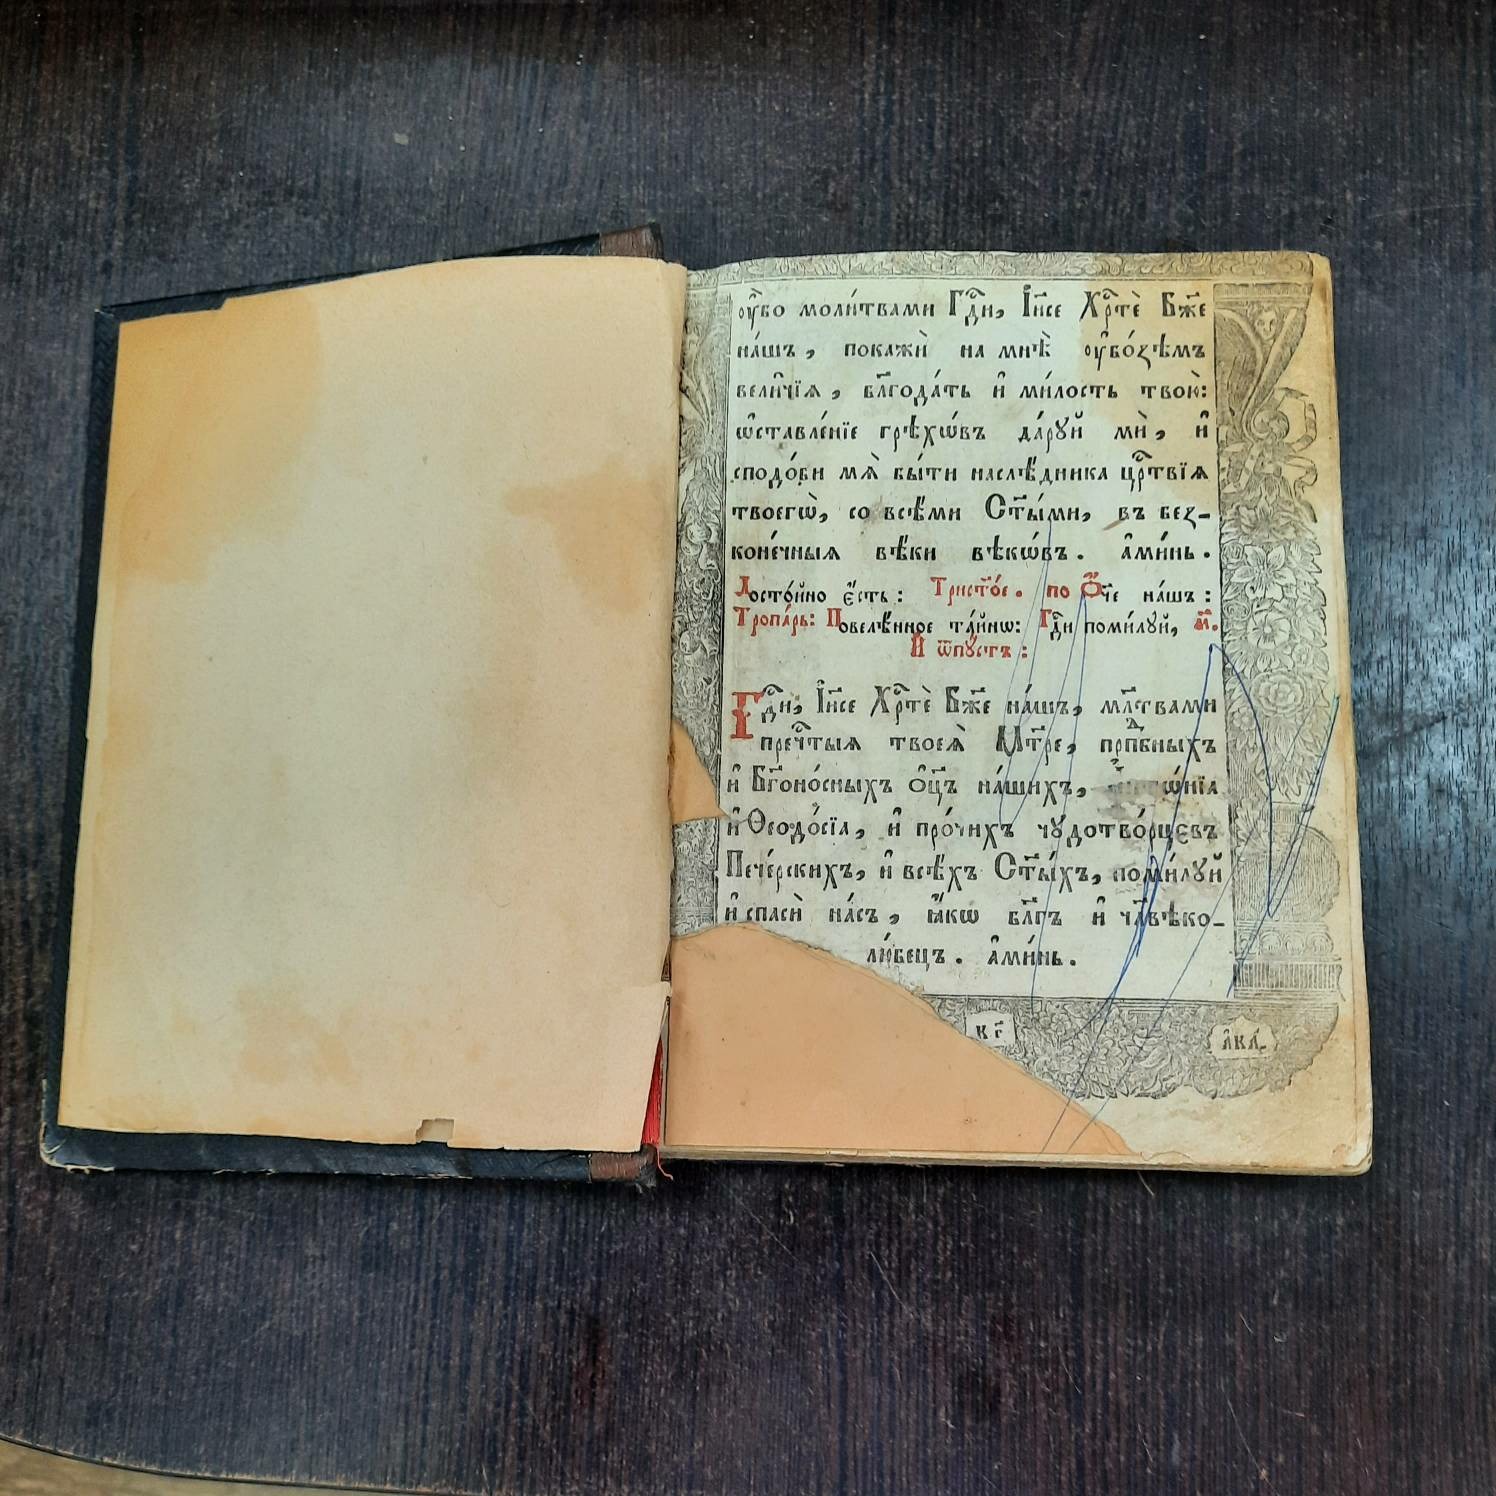 ᲂу҆́бо моли́твами Гдⷭ҇и, І҆и҃се Хрⷭ҇тѐ Бж҃е
на́шъ, покажѝ на мнѣ̀ ᲂу҆бо́зѣмъ
вели̑чїѧ, бл҃года́ть и҆ ми́лость твою̀:
ѡ҆ставле́нїе грѣхѡ́въ да́руй мѝ, и҆
сподо́би мѧ̀ бы́ти наслѣ́дника црⷭ҇твїѧ
твоегѡ̀, со всѣ́ми Ст҃ы́ми, въ без-
коне́чныѧ вѣ́ки вѣкѡ́въ. А҆ми́нь.
Досто́йно є҆́сть: Трист҃о́е. по Ѻ҆́ч҃е на́шъ:
Тропа́рь: Повелѣ́нное та́йнѡ: Гдⷭ҇и поми́луй, м҃.
И҆ ѿпꙋ́стъ:
Гдⷭ҇и, І҆и҃се Хрⷭ҇тѐ Бж҃е на́шъ, мл҃твами
пречⷭ҇тыѧ твоеѧ̀ Мт҃ре, прпⷣбныхъ
и҆ Бг҃оно́сныхъ Ѻ҆ц҃ъ на́шихъ, А҆нтѡ́нїа
и҆ Ѳеодо́сїа, и҆ про́чихъ чꙋдотво́рцєвъ
Пече́рскихъ, и҆ всѣ́хъ Ст҃ы́хъ, поми́луй
и҆ спасѝ на́съ, ꙗ҆́кѡ бл҃гъ и҆ чл҃вѣко-
лю́бецъ. А҆ми́нь.
кг҃ а҆ка́-